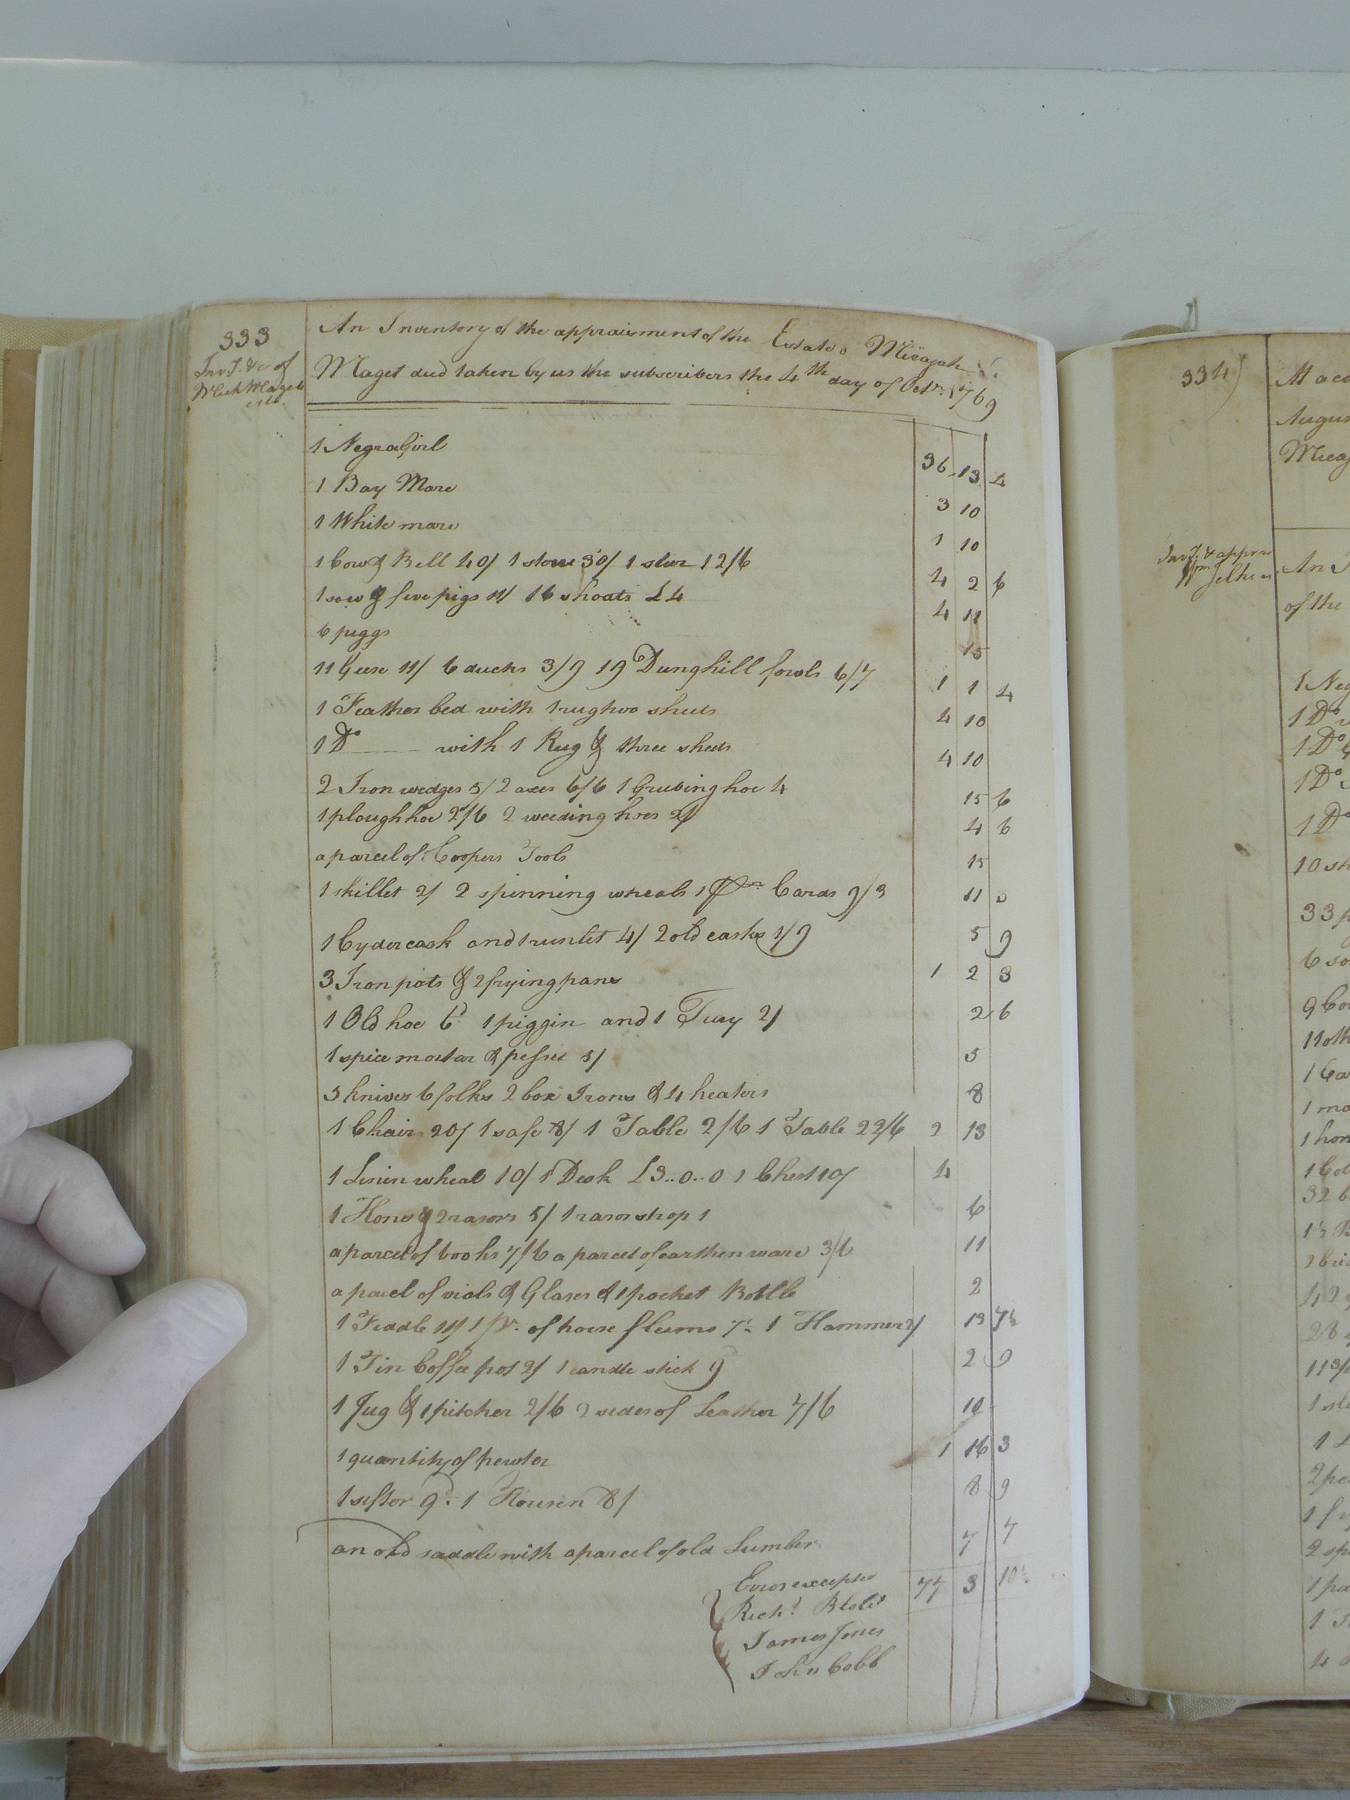 333
Inv.T. &c of
Mich Magets
esta.
An Inventory of the appraisment of the Estate o Micajah
Maget decd taken by us the subscribers the 4th day of Octr. 1769
1 Negroe Girl 36 13 4
1 Bay Mare 3 10
1 White mare 1 10
1 Cow & Bell 40/ 1 steere 30/ 1 steer 12/6 4 2 6
1 sow & five pigs 11/ 16 shoats £4 4 11
6 piggs 15
11 Geese 11/ 6 ducks 3/9 19 Dunghill fowls 6/7 1 1 4
1 Feather bed with 1 rug two sheets 4 10
1 Do with 1 Rug & three sheets 4 10
2 Iron wedges 5/ 2 axes 6/6 1 Grubing hoe 4 15 6
1 plough hoe 2/6 2 weeding hoes 2/ 4 6
a parcel of Coopers Tools 15
1 skillet 2/ 2 spinning wheels 1 pr Cards 9/3 11 3
1 Cyder cask and 1 runlet 4/ 2 old casks 1/9 5 9
3 Iron pots & 2 frying pans 1 2 3
1 Old hoe 6d 1 piggin and 1 Tray 2/ 2 6
1 spice mortar & pesree 5/ 5
5 knives 6 folks 2 box Irons & 4 heaters 8
1 Chair 20/ 1 safe 8/ 1 Table 2/6 1 Table 22/6 2 13
1 Linin wheal 10/ 1 Desk £3..0..0 1 Chest 10/ 4
1 Hone & 2 rasors 5/ 1 rasor strop 1 6
a parcel of books 7/6 a parcel of earthen ware 3/6 11
a parcel of viols & Glases & 1 pocket Bottle 2
1 Fiddle 11/ 1 pr. of horse fleems 7½ 1 Hammer 2/ 13 7½
1 Tin Coffee pot 2/ 1 candle stick 9 2 9
1 Jug & 1 pitcher 2/6 2 sides of Leather 7/6 10
1 quantity of pewter 1 16 3
1 sifter 9d. 1 Housen 8/ 8 9
an old saddle with a parcel of old Lumber 7 7
Erors excepted 77 3 10½
Richd.
James Jones
John Cobb
334
Augus
Micaj
Inv.T. & apprai
An I
of the
1 Neg
1 Do
1 Do
1 Do
1 Do
10 sh
33 p
6 so
9 Co